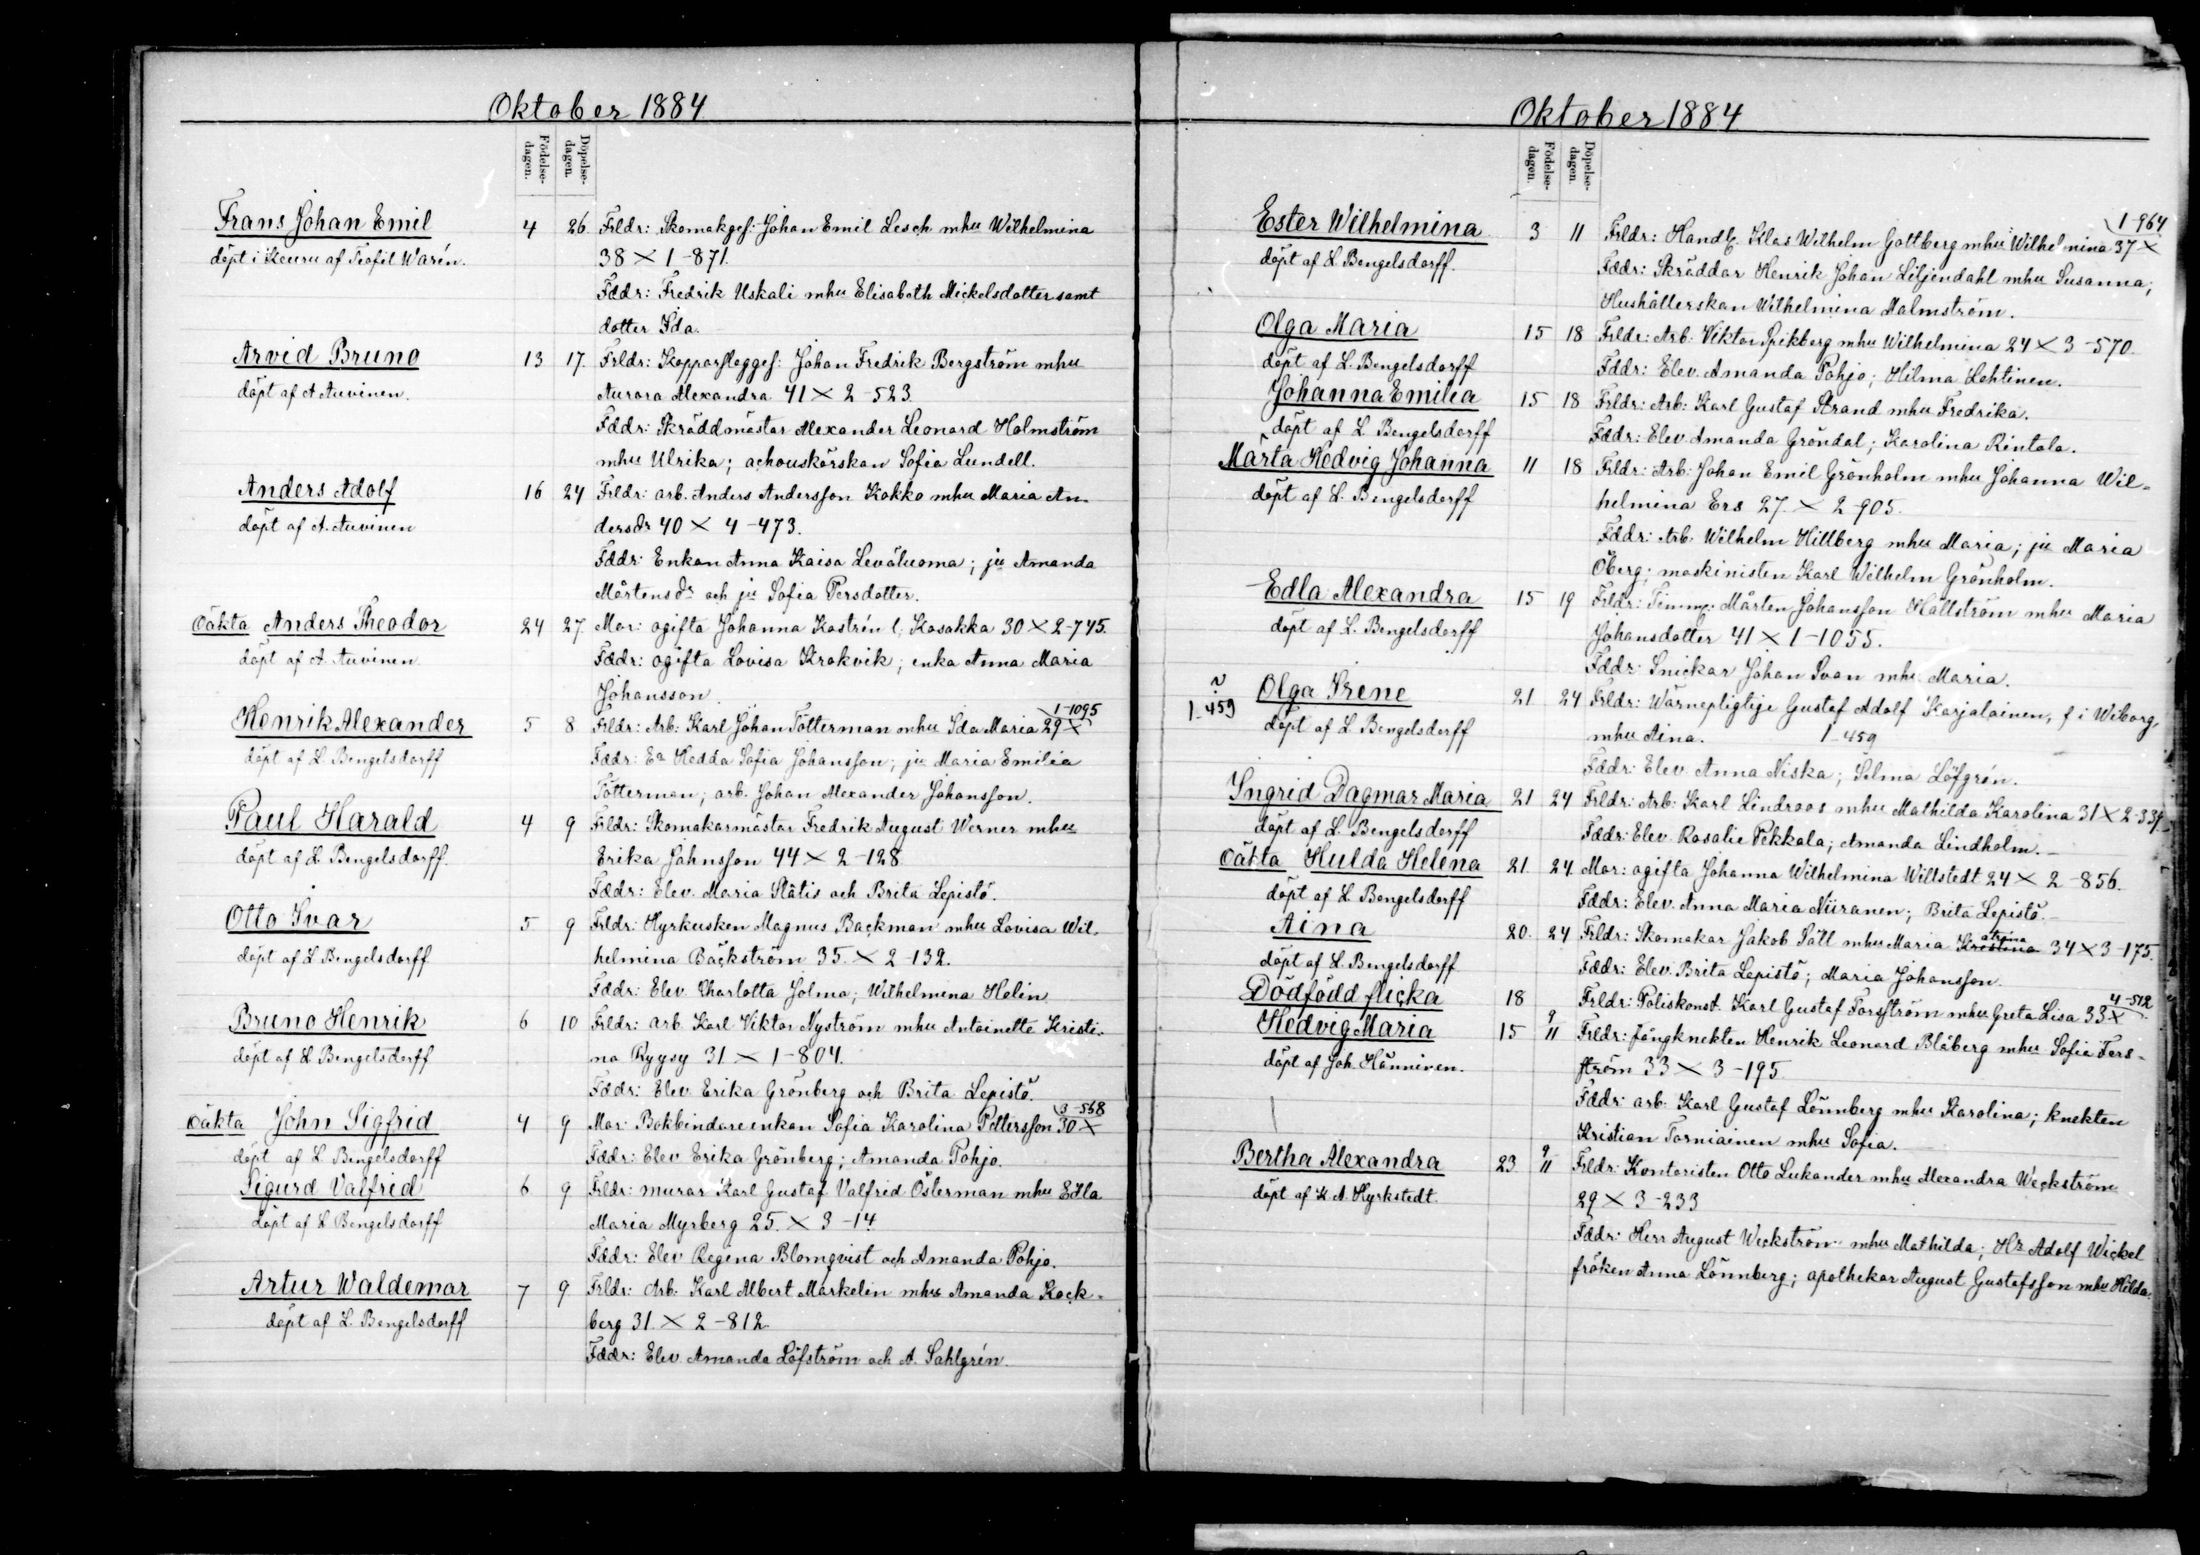 Oktober 1884
Födelse-dagen.
Döpelse-dagen.
Frans Johan Emil 4 26 Frldr: Skomakges: Johan Emil Lesch mhu Wilhelmina
döpt i Keuru af Teofil Warén. 38 × 1-871.
Fddr: Fredrik Uskali mhu Elisabeth Mickelsdotter samt
dotter Ida.
Arvid Bruno 13 17. Frldr: Kopparslagges: Johan Fredrik Bergström mhu
döpt af A Auvinen. Aurora Alexandra 41 × 2-523.
Fddr: Skräddmästar Alexander Leonard Holmström
mhu Ulrika; achouskörskan Sofia Lundell.
Anders Adolf 16 24 Frldr: arb. Anders Andersson Kokko mhu Maria An-
döpt af A. Auvinen dersdr 40 × 4-473.
Fddr: Enkan Anna Kaisa Leväluoma; ju Amanda
Mårtensdr och ju Sofia Persdotter.
Oäkta Anders Theodor 24 27. Mor: ogifta Johanna Kastrén l. Kasakka 30 × 2-745.
döpt af A Auvinen. Fddr: ogifta Lovisa Krokvik; enka Anna Maria
Johansson.
Henrik Alexander 5 8 Frldr: Arb: Karl Johan Totterman mhu Ida Maria 29 × 1-1095
döpt af L. Bengelsdorff Fddr: Ea Hedda Sofia Johansson; ju Maria Emilia
Totterman; arb. Johan Alexander Johansson.
Paul Harald 4 9 Frldr: Skomakarmästar Fredrik August Werner mhu
döpt af L. Bengelsdorff. Erika Johnsson 44 × 2-128
Fddr: Elev. Maria Stätis och Brita Lepistö.
Otto Ivar 5 9 Frldr: Hyrkusken Magnus Backman mhu Lovisa Wil-
döpt af L Bengelsdorff helmina Bäckström 35. × 2-132.
Fddr: Elev. Charlotta Jolma; Wilhelmina Helin
Bruno Henrik 6 10 Frldr: arb. Karl Viktor Nyström mhu Antoinette Kristi-
döpt af L Bengelsdorff na Ryysy 31 × 1-804.
Fddr: Elev Erika Grönberg och Brita Lepistö.
Oäkta John Sigfrid 4 9 Mor: Bokbindareenkan Sofia Karolina Pettersson 30 × 3-568
döpt af L. Bengelsdorff Fddr: Elev Erika Grönberg; Amanda Pohjo.
Sigurd Valfrid 6 9 Frldr: murar Karl Gustaf Valfrid Österman mhu Edla
döpt af L Bengelsdorff Maria Myrberg 25. × 3-14
Fddr: Elev Regina Blomqvist och Amanda Pohjo.
Artur Waldemar 7 9 Frldr: Arb. Karl Albert Markelin mhu Amanda Kock-
döpt af L. Bengelsdorff berg 31. × 2-812.
Fddr: Elev Amanda Löfström och A. Sahlgrén.
Oktober 1884
Födelse-dagen.
Döpelse-dagen.
Ester Wilhelmina 3 11 Frldr: Handl. Klas Wilhelm Gottberg mhu Wilhelmina 37 × 1-964
döpt af L. Bengelsdorff. Fddr: Skräddar Henrik Johan Liljendahl mhu Susanna;
Hushållerskan Wilhelmina Malmström.
Olga Maria 15 18 Frldr: Arb. Viktor Spikberg mhu Wilhelmina 24 × 3-570.
döpt af L. Bengelsdorff Fddr: Elev. Amanda Pohjo; Hilma Lehtinen.
Johanna Emilia 15 18 Frldr: Arb: Karl Gustaf Strand mhu Fredrika.
döpt af L. Bengelsdorff Fddr: Elev. Amanda Gröndal; Karolina Rintala.
Märta Hedvig Johanna 11 18 Frldr: Arb: Johan Emil Grönholm mhu Johanna Wil-
döpt af L. Bengelsdorff helmina Ers 27. × 2-905.
Fddr: Arb. Wilhelm Hillberg mhu Maria; ju Maria
Öberg; maskinisten Karl Wilhelm Grönholm.
Edla Alexandra 15 19 Frldr: Timmg: Mårten Johansson Hallström mhu Maria
döpt af L. Bengelsdorff Johansdotter 41 × 1-1055.
Fddr: Snickar Johan Svan mhu Maria.
1-459 Olga Irene 21 24 Frldr: Wärnepligtige Gustaf Adolf Karjalainen, f i Wiborg,
döpt af L. Bengelsdorff mhu Aina. 1-459
Fddr: Elev. Anna Niska; Selma Löfgrén.
Ingrid Dagmar Maria 21 24 Frldr: Arb: Karl Lindroos mhu Mathilda Karolina 31 × 2-339.
döpt af L. Bengelsdorff Fddr: Elev. Rosalie Pekkala; Amanda Lindholm.
Oäkta Hulda Helena 21. 24 Mor: ogifta Johanna Wilhelmina Willstedt 24 × 2-856.
döpt af L. Bengelsdorff Fddr: Elev. Anna Maria Niiranen; Brita Lepistö.
Aina 20. 24 Frldr: Skomakar Jakob Päll mhu Maria Kristina atrina 34 × 3-175.
döpt af L. Bengelsdorff Fddr: Elev. Brita Lepistö; Maria Johansson.
Dödfödd flicka 18 Frldr: Poliskonst. Karl Gustaf Forsström mhu Greta Lisa 33 × 4-512
Hedvig Maria 15 9/11 Frldr: fångknekten Henrik Leonard Blåberg mhu Sofia Fers-
döpt af Joh. Hänninen. ström 33 × 3-195
Fddr: arb. Karl Gustaf Lönnberg mhu Karolina; knekten
Kristian Torniainen mhu Sofia.
Bertha Alexandra 23 9/11 Frldr: Kontoristen Otto Lukander mhu Alexandra Weckström
döpt af K A. Hyrkstedt. 29 × 3-233
Fddr: Herr August Weckström mhu Mathilda; Hr Adolf Wickel
fröken Anna Lönnberg; apothekar August Gustafsson mhu Hilda.